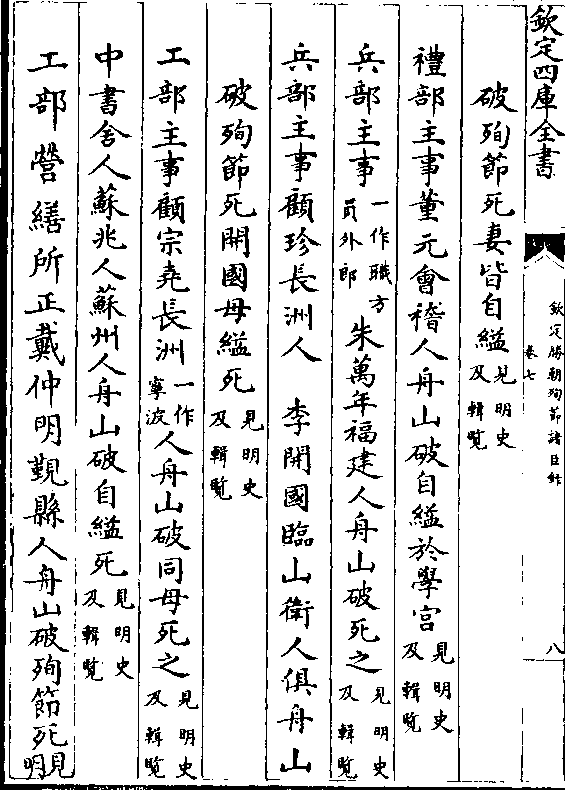 欽定四庫全書
欽定勝朝殉節諸臣錄
卷七
八
破殉節死妻皆自縊見明史及輯覽
禮部主事董元會稽人舟山破自縊於學宫見明史及輯覽
兵部主事一作職方員外郎朱萬年福建人舟山破死之見明史及輯覽
兵部主事顧珍長洲人 李開國臨山衛人俱舟山
破殉節死開國母縊死見明史及輯覽
工部主事顧宗堯長洲一作寧波人舟山破同母死之見明史及輯覽
中書舍人蘇兆人蘇州人舟山破自縊死見明史及輯覽
工部營繕所正戴仲明覲縣人舟山破殉節死見明